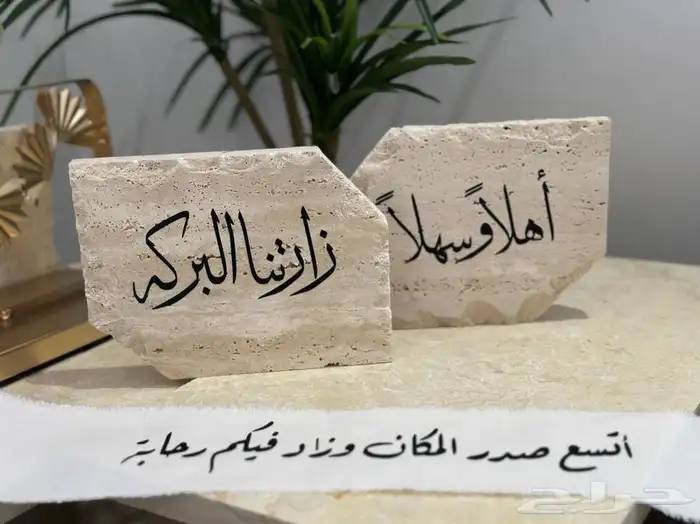 أهلاً وسهلاً
زارتنا البركه
أتسع صدر المكان وزاد فيكم رحابة
حراج